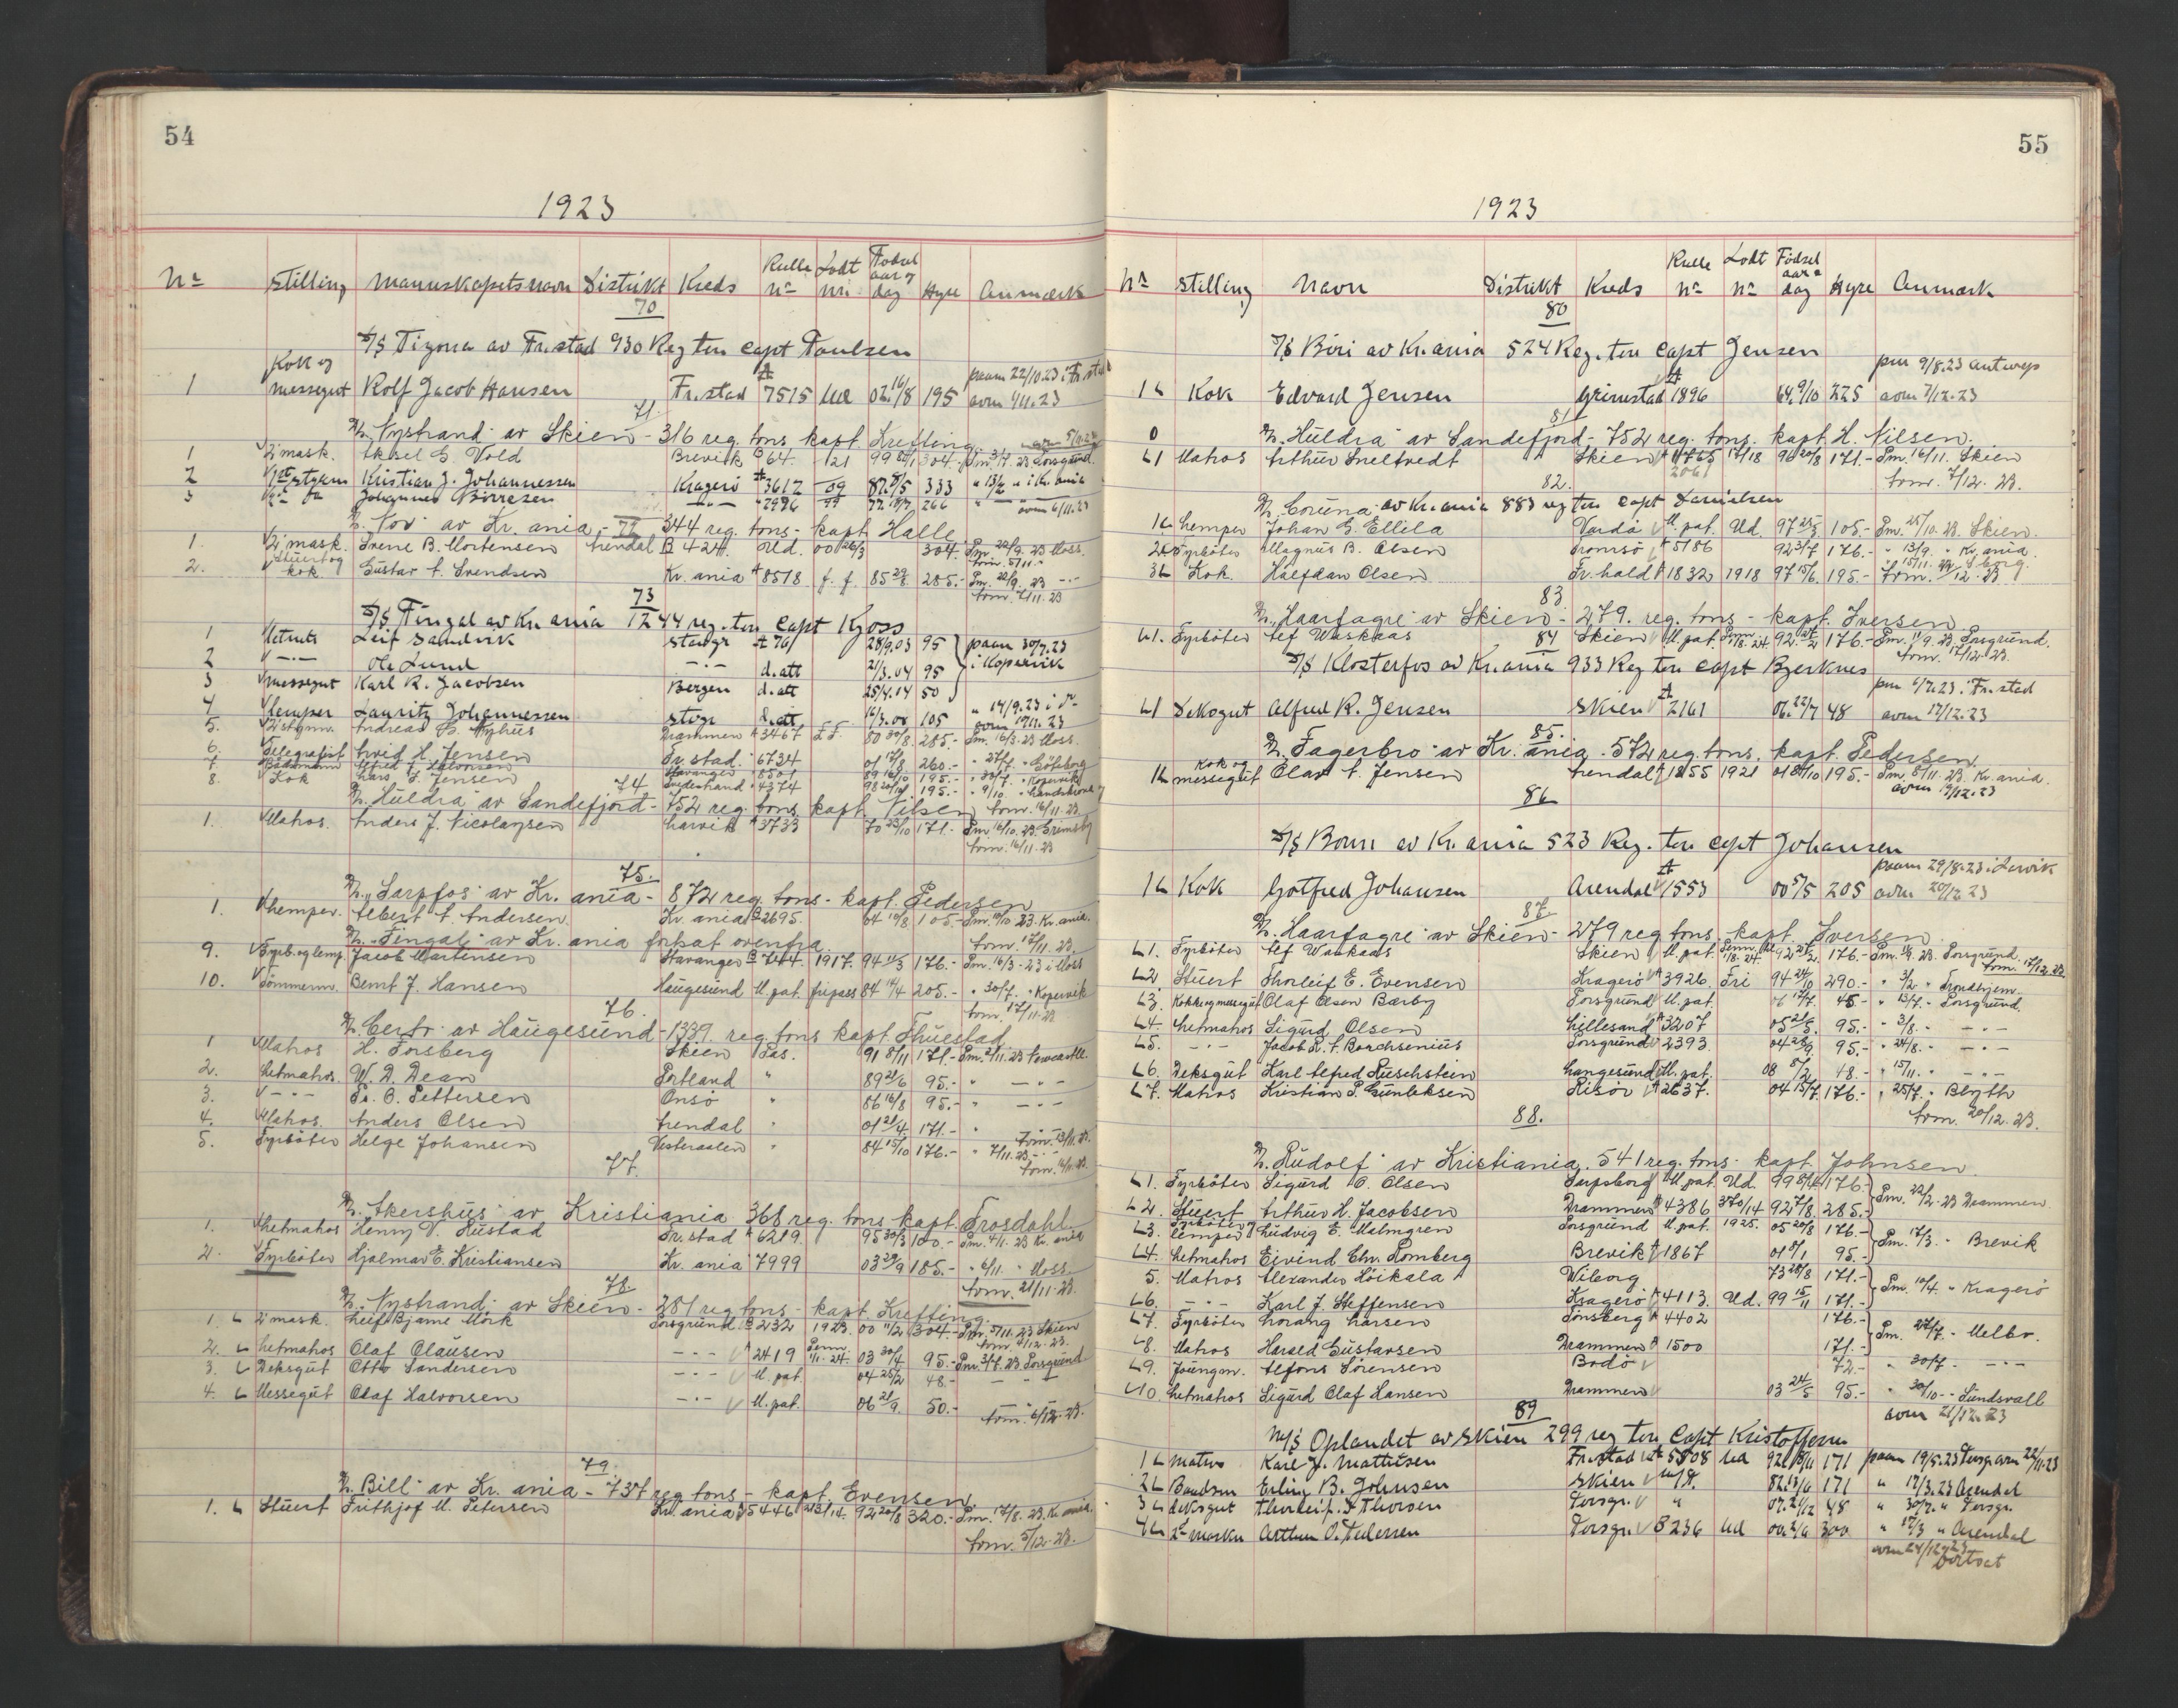 54
1923
Nr Stilling Mannskapets navn Distrikt Kreds Rulle nr Lodt nr. Födsel aar og dag Hyre Anmærk
70
S/S Tizona av Fr.stad 930 Reg ton capt Poulsen
Kok og paam 22/10.23 i Fr.stad
1 messegut Rolf Jacob Hansen Fr.stad A 7515 Ud 02 16/8 195 avm 4/11.23
71.
D/S "Nystrand" av Skien - 316 reg. tons kapt. Krefting avm 5/11.23
1 2 mask. Aksel G. Vold Brevik B 64. 121 99 304.- Pm. 3/7. 23 Porsgrund.
2 Kristian J. Johannessen Kragerö A 3612 09 87. 333 " 13/2 " i Kr. ania
3 Johannes Börresen -"- " 2996 99 77 266 avm 6/11.23
D/S "Nov" av Kr. ania - 72 344 reg. tons - kapt. Halle.
1. 2 mask. Svene B. Mortensen Arendal B 424. Ud. 00 26/3 304. Pm. 22/9. 23 Moss. frm. 5/11.
2. Stuert og kok Gustav A. Svendsen Kr. ania A 8518 f. f. 85 29/8 285.- Pm. 22/9. 23 -"-
frm. 7/11.23
73
S/S Fingal av Kr. ania 1244 reg. ton Capt Kjoss
1 Letmats Leif Sandvik Stavgr A 761 28/9.03 95 paam 30/7.23
2 -"- Ole Lund -"- d. att 21/3.04 95 i Kopervik
3 messegut Karl R. Jacobsen Bergen d. att 25/4.14 50
4 Lemper Lauritz Johannessen Stavgr d. att 16/3.08 105 " 14/9.23 i do
5. 2 Styrm. Andreas B. Nyhus Drammen A 3467 F.F. 80 30/8. 285.- Pm. 16/3. 23 Moss.
6. Telegrafist Arvid H. Jensen Fr. stad. " 6734 01 17/8 260.- " 27/7. " Göteborg
7. Baadsmann Alfred T. Halvorsen Stavanger " 8501 89 16/10 195.- " 30/7. " Kopervik
8. Kok Lars T. Jensen Tvedestrand " 4374 98 195.- " 9/10. " Landskrona
74
D/S "Huldra" av Sandefjord - 752 reg. tons kapt. Nilsen frm. 16/11.23.
1. Matros. Anders J. Nicolaysen Larvik A 3733 70 23/10 171.- Pm. 16/10. 23. Grimsby
frm. 16/11.23
75.
D/S "Sarpfos" av Kr. ania - 872 reg. tons - kapt. Pedersen
1. Lemper. Albert A. Andersen. Kr. ania B 2695. 04 10/8 105.- Pm. 10/10. 23. Kr. ania.
D/S "Fingal" av Kr. ania fortsat ovenfra. frm. 17/11.23.
9. Fyrb. og lemp. Jacob Martensen Stavanger B 744. 1917. 94 176.- Pm. 16/3 - 23 i Moss
10. Tömmerm. Bernt J. Hansen Haugesund M. pat. fripass 84 14/4 205.- " 30/7. " Kopervik
76. frm. 17/11.23
D/S "Certo" av Haugesund - 1339. reg. tons kapt. Thuestad.
1 Matros H. Forsberg Skien Pas. 91 8/11 171.- Pm. 2/11. 23 Newcastle.
2. Letmatros. W. D. Dean Portland " 89 21/6 95.- " -"-
3. -"- Fr. O. Pettersen Onsö " 86 16/8 95.- " -"-
4. Matros. Anders Olsen Arendal " 01 21/4. 171.- " frm. 13/11.23.
5. Fyrböter Helge Johansen Vesteraalen " 84 15/10 176.- " 7/11.23. -"-
77. frm.
D/S "Akershus" av Kristiania 368 reg. tons kapt. Frosdahl.
1. Letmatros Henry V. Rustad Fr. stad A 6219. 95 30/3 100.- Pm. 4/11. 23 Kr. ania
2. Fyrböter Hjalmar E. Kristiansen Kr. ania " 7999 03 29/9 185.- " 6/11. " Moss
78. frm. 21/11.23.
D/S "Nystrand" av Skien - 281 reg tons - kapt. Krefting.
1. 2 mask. Leif Bjarne Mörk Porsgrund B 232 1923. 00 11/2 304.- Pm. 5/11. 23 Skien
2. Letmatros Olaf Clausen -"- A 2419 Perm. 1/11. 24. 03 30/4 95.- Pm. 3/7. 23 Porsgrund
3. Deksgut Otto Sandersen -"- M. pat. 04 25/2 48.- -"-
4. Messegut Olaf Halvorsen -"- M. pat. 06 21/9. 50.- frm. 6/12.23.
79.
D/S "Bill" av Kr. ania - 737 reg tons - kapt. Evensen
1. Stuert Frithjof M. Petersen Kr. ania A 5446 92 20/8 320.- Pm. 17/8. 23. Kr. ania.
frm. 5/12.23.
55
1923
Nr Stilling Navn Distrikt Kreds Rulle nr Lodt nr Födsel aar & dag Hyre Anmærk
80
S/S Biri av Kr.ania 524 Reg. ton Capt Jensen
pm 9/8.23 Antwerp
1 Kok Edvard Jensen Grimstad A 1896 64. 9/10 225 avm 7/12.23
81
0 D/S "Huldra" av Sandefjord - 752 reg. tons. kapt. H. Nilsen.
1 Matros Arthur Sneltvedt Skien A 1765 17/18 96 20/8 171.- Pm. 16/11. Skien
2061 82. frm. 7/12. 23.
D/S "Coruna" av Kr.ania 883 reg ton Capt Danielsen
1 Lemper Johan G. Ellila Vardö M. pat. Ud. 97 25/3 105.- Pm. 25/10. 23. Skien.
2 Fyrböter Magnus B. Olsen Tromsö A 5186 92 3/7 176.- " 13/9. " Kr. ania.
3 Kok. Halfdan Olsen Fr. hald A 1832 1918 97 15/6. 195.- " 15/11. 23 S.borg.
83.
D/S "Haarfagre" av Skien - 279. reg. tons - kapt. Iversen
1. Fyrböter Alf Waskaas Skien M. pat. Perm. 1/8. 24. 92 176.- Pm. 11/9. 23. Porsgrund.
84 frm. 17/12.23.
S/S Klosterfos av Kr.ania 933 Reg ton Capt Bjerknes
pm 6/7.23 i Fr.stad
1 Dekogut Alfred R. Jensen Skien A 2161 06. 22/7 48 avm 17/12.23
85.
D/S "Fagerbro" av Kr. ania - 572 reg. tons. kapt. Pedersen.
1 Kok og messegut Olav A. Jensen Arendal A 1855 1921 01 195.- Pm. 8/11. 23. Kr. ania.
86 avm 19/12.23
S/S Borun av Kr. ania 523 Reg. ton Capt Johansen
paam 29/8.23 i Larvik
1 Kok Gotfred Johansen Arendal A 1553 00 5/5 205 avm 20/12 23
87.
D/S "Haarfagre" av Skien - 279 reg tons kapt. Iversen
1. Fyrböter Alf Waskaas Skien M. pat. Perm. 1/8. 24. 92 176.- Pm. 11/9. 23. Porsgrund frm. 17/12.23.
2. Stuert Thorleif E. Evensen Kragerö A 3926. Fri 94 24/10 290.- " 3/2 " Trondhjem.
3. Kokk og messegut Olaf Olsen Bærby Porsgrund M. pat. 06 17/7. 45.- " 13/7. - Porsgrund.
4. Letmatros Sigurd Olsen Lillesand A 3207 05 21/5. 95.- " 3/8. - -"-
5. -"- Jacob R. A. Borchsenius Porsgrund 2393. 04 28/9. 95.- " 24/8. - -"-
6. Deksgut Karl Alfred Ruschstein Langesund M. pat. 08 8/2 48.- " 15/11. " -"-
7. Matros Kristian P. Gunleksen Risör A 2637. 04 15/7. 176.- " 25/7. " Blyth
88. frm. 20/12.23.
D/S "Rudolf" av Kristiania. 541 reg. tons - kapt. Johnsen
1. Fyrböter Sigurd O. Olsen Sarpsborg M. pat. Ud. 99 8/4 176.- Pm. 22/2. 23 Drammen
2. Stuert Arthur H. Jacobsen Drammen A 4386 370/14 92 7/8. 285.-
3. Fyrböter & lemper Ludvig E. Malmgren Porsgrund M. pat. 1925. 05 20/8 176.- Pm. 17/3. " Brevik
4. Letmatros Eivind Chr. Romberg Brevik A 1867 01 8/1 95.-
5. Matros Alexander Hoikala Wiborg 73 28/8 171.- Pm. 10/4. " Kragerö
6. -"- Karl J. Steffensen Kragerö A 4113. Ud. 99 15/11 171.-
7. Fyrböter Lorang Larsen Tönsberg A 4402 176.- Pm. 27/7. - Melbo.
8. Matros Harald Gustavsen Drammen A 1500 171.-
9. Joungm. Alfons Sörensen Bodö 72.- " 30/7. - -"-
10. Letmatros Sigurd Olaf Hansen Drammen 03 24/5 95.- " 30/10. - Sundsvall
89 avm 21/12.23
M/S Oplandet av Skien 299 reg ton Capt Kristoffersen
1 Matros Karl J. Mathisen Fr.stad A 5508 Ud 92. 171 paam 19/5.23 Porsgr avm 22/11.23
2 Baadsm Erling B. Johnsen Skien 82. 13/6 171 " 17/3.23 Arendal
3 deksgut Thorleif. S Thorsen Porsgr. " 07. 21/12 48 " 30/7. " Porsgr.
4 2 maskn Arthur O. Pedersen Porsgr. B 236 Ud 00. 2/6 300 " 17/3 " Arendal
avm 24/12.23
Fortsat